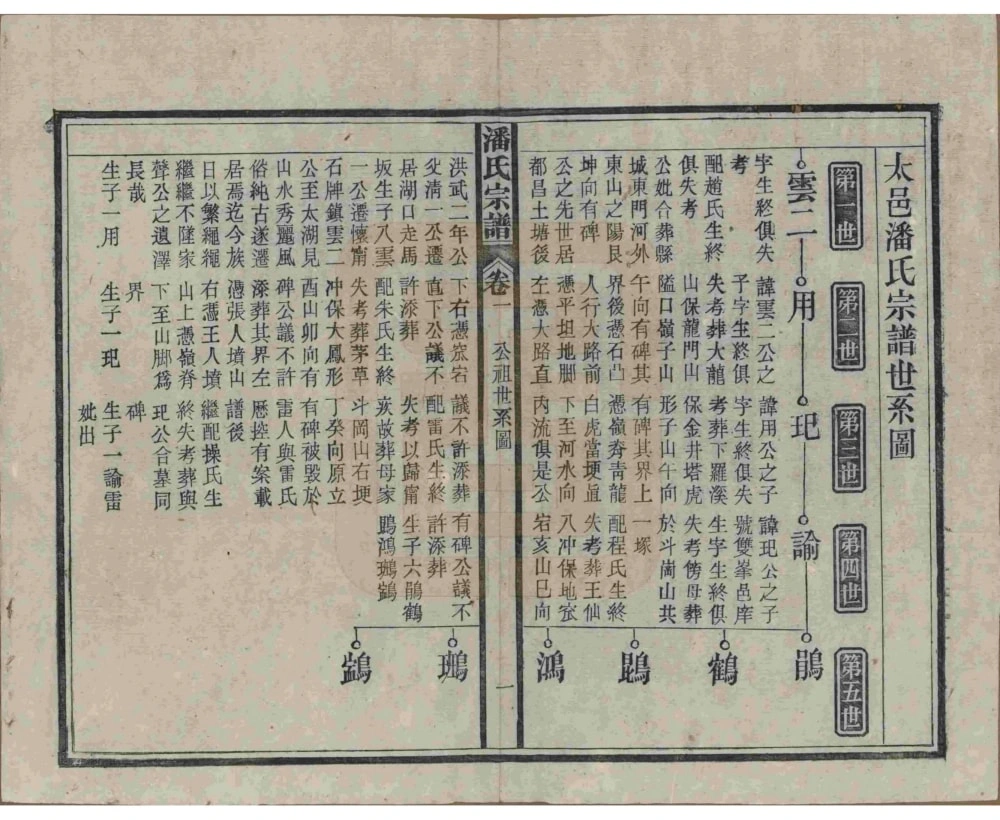 太邑潘氏宗譜世系圖
第一世
第二世
第三世
第四世
第五世
雲二
用
玘
諭
鵑
鶴
鴻
字生終俱失
考
配趙氏生終
俱失考
公妣合葬縣
城東門河外
東山之陽艮
坤向有碑
公之先世居
都昌土塘後
洪武二年公
父清一公遷
居湖口走馬
坂生子八雲
一公遷懷甯
石牌鎮雲二
公至太湖見
山水秀麗風
俗純古遂遷
居焉迄今族
日以繁繩繩
繼繼不墜家
聲公之遺澤
長哉
生子一用
諱雲二公之
子字生終俱
失考葬大龍
山保龍門山
隘口嶺子山
午向有碑其
界後憑石凸
人行大路前
憑平坦地脚
左憑大路直
下右憑窊宕
直下公議不
許添葬
配朱氏生終
失考葬茅草
冲保大鳳形
酉山卯向有
碑公議不許
添葬其界左
憑張人墳山
右憑王人墳
山上憑嶺脊
下至山脚爲
界
生子一玘
諱用公之子
字生終俱失
考葬下羅溪
保金井塔虎
形子山午向
有碑其界上
憑嶺脊青龍
白虎當埂直
下至河水向
内流俱是公
議不許添葬
配雷氏生終
失考以歸甯
疾故葬母家
斗岡山右埂
丁癸向原立
有碑被毀於
雷人與雷氏
歷控有案載
譜後
繼配操氏生
終失考葬與
玘公合墓同
碑
生子一諭雷
妣出
諱玘公之子
號雙峯邑庠
生字生終俱
失考傍母葬
於斗崗山共
一塚
配程氏生終
失考葬王仙
八冲保地
宕亥山巳向
有碑公議不
許添葬
生子六鵑鶴
鴻
潘氏宗譜
卷一
公祖世系圖
一